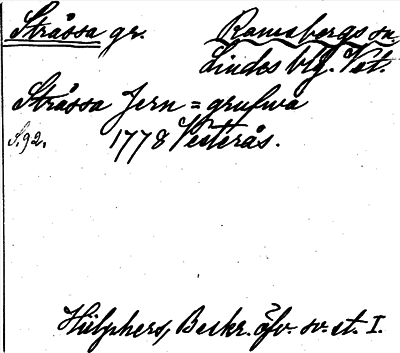 Stråssa gr.
Ramsbergs sn.
Lindes blg. Vst.
Stråssa Jern=grufwa
S.92. 1778 Vesterås.
Hülphers, Beskr. öfv. sv. st. I.